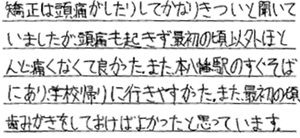 矯正は頭痛がしたりしてかなりきついと聞いて
いましたが、頭痛も起きず最初の頃以外ほと
んど痛くなくて良かった。また、本八幡駅のすぐそば
にあり、学校帰りに行きやすかった。また、最初の頃
歯みがきをしておけばよかったと思っています。